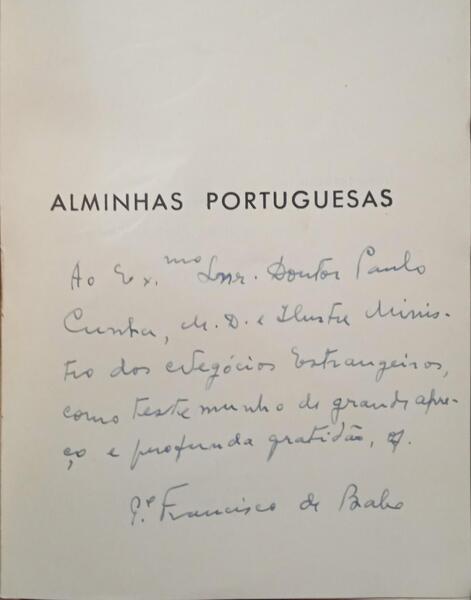 ALMINHAS PORTUGUESAS
Ao Ex.mo Snr. Doutor Paulo
Cunha, M. D. e Ilustre Minis-
tro dos Negócios Estrangeiros,
como testemunho de grande apre-
ço e profunda gratidão, of.
P.e Francisco de Babo